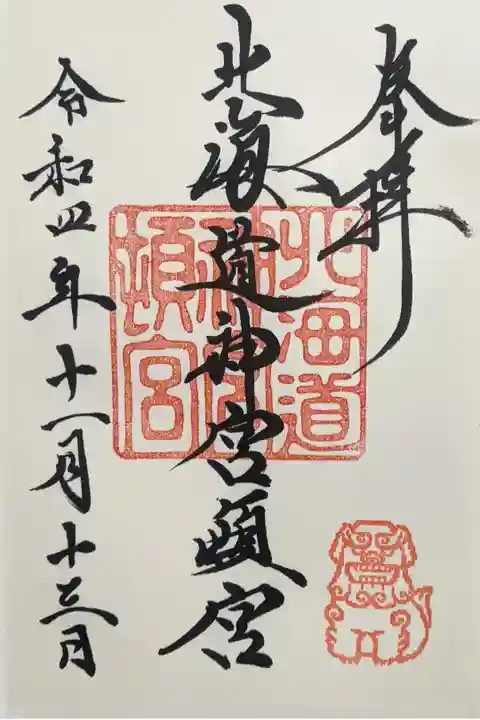 奉拝
北海道神宮頓宮
北海道神宮頓宮
令和四年十一月十三日